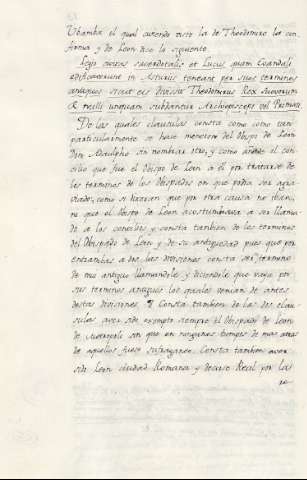 Ubamba el qual aviendo visto la de Theodomiro la con
firma y de Leon dice lo siguiente
Legio quam sacerdotalis et Lucus quam Euandali
edificaverunt in Asturiis teneant per suos terminos
antiquos sicut eis divisit Theodomirus Rex Suevorum
& nulli unquam subdantur Archiepiscopo vel Primati
De las quales clausulas consta como como tan
particularmente se hace mencion del Obispo de Leon
sin nombrar otro, y como al con
cilio que fue el Obispo de Leon a el por tratarse de
los terminos de los Obispados en que podia ser agra
viado, como si dixesen que por otra causa no iban
ni que el Obispo de Leon acostumbrava a ser llama
do a los concilios y consta tambien de los terminos
del Obispado de Leon y de su antiguedad pues que por
entrambas a dos las divisiones consta ser termino
de mui antiguo llamandole y diciendole que vaya por
sus terminos antiguos los quales venian de antes
destas divisiones. ¶ Consta tambien de las dos clau
sulas aver sido exempto siempre el Obispado de Leon
de sin que en ningunos tiempos de mas atras
de aquellos fuese sufraganeo. Consta tambien aver
sido Leon ciudad Romana y decirse Real por los